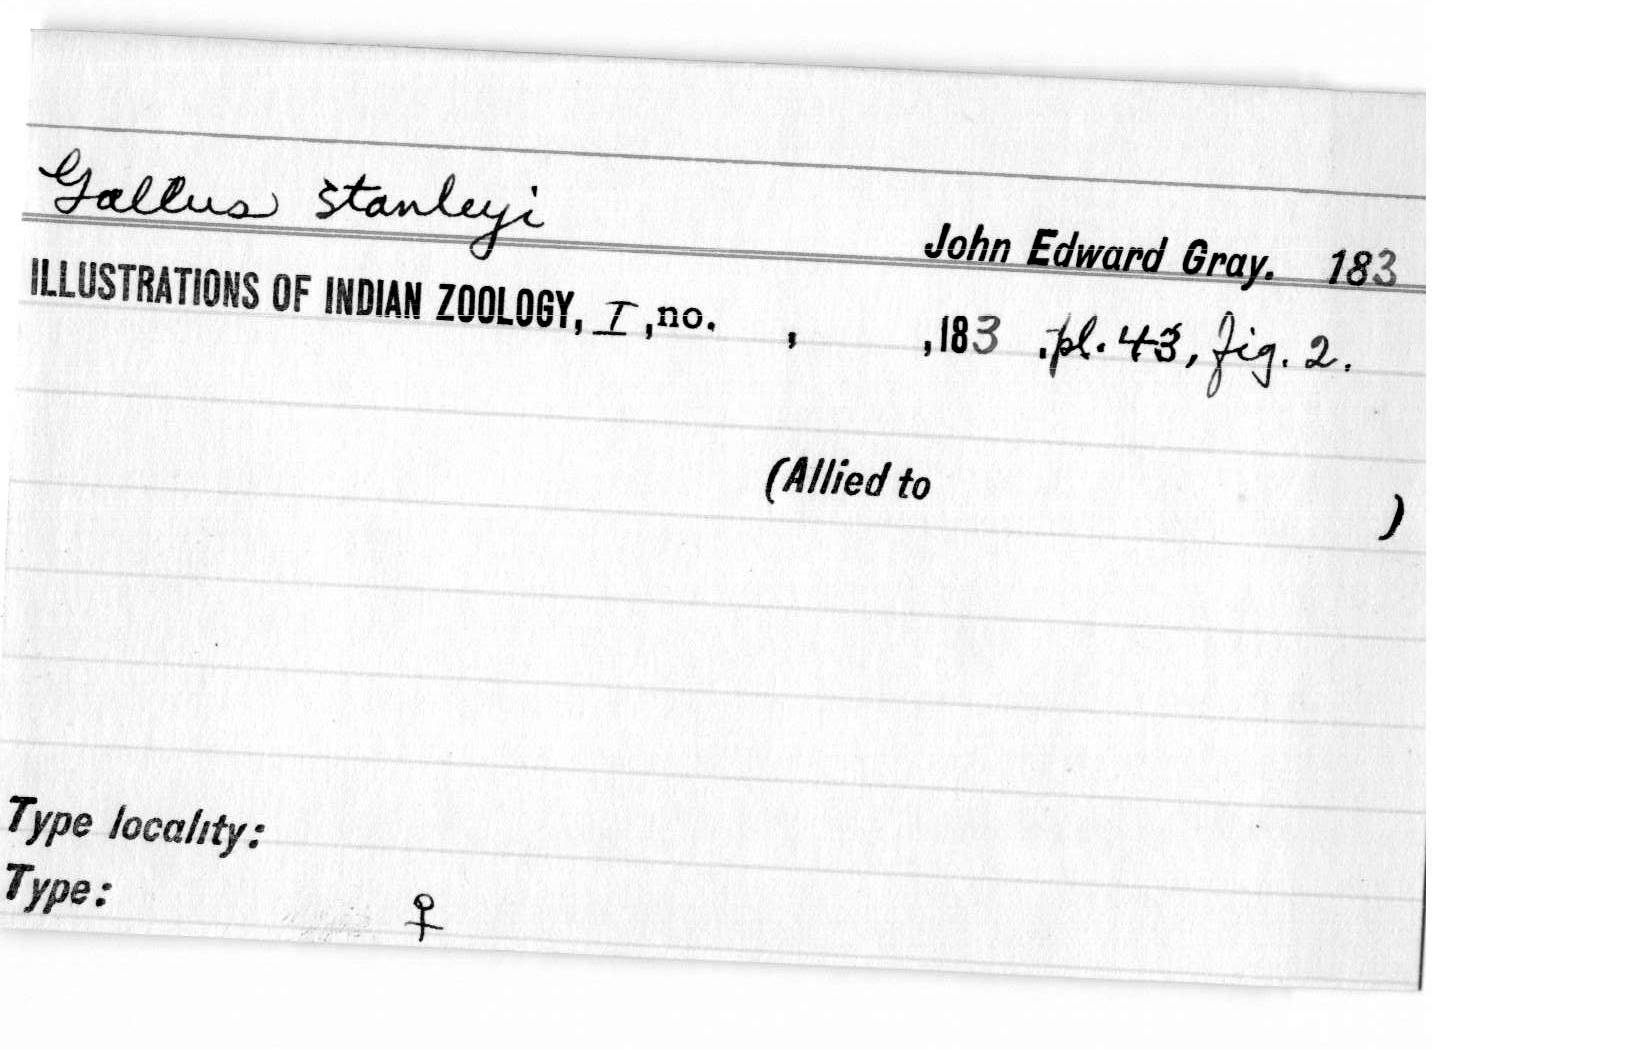 Gallus stanleyi
John Edward Gray. 183
ILLUSTRATIONS OF INDIAN ZOOLOGY, I, no. , ,183 .pl. 43, fig. 2.
(Allied to )
Type locality:
Type: ♀